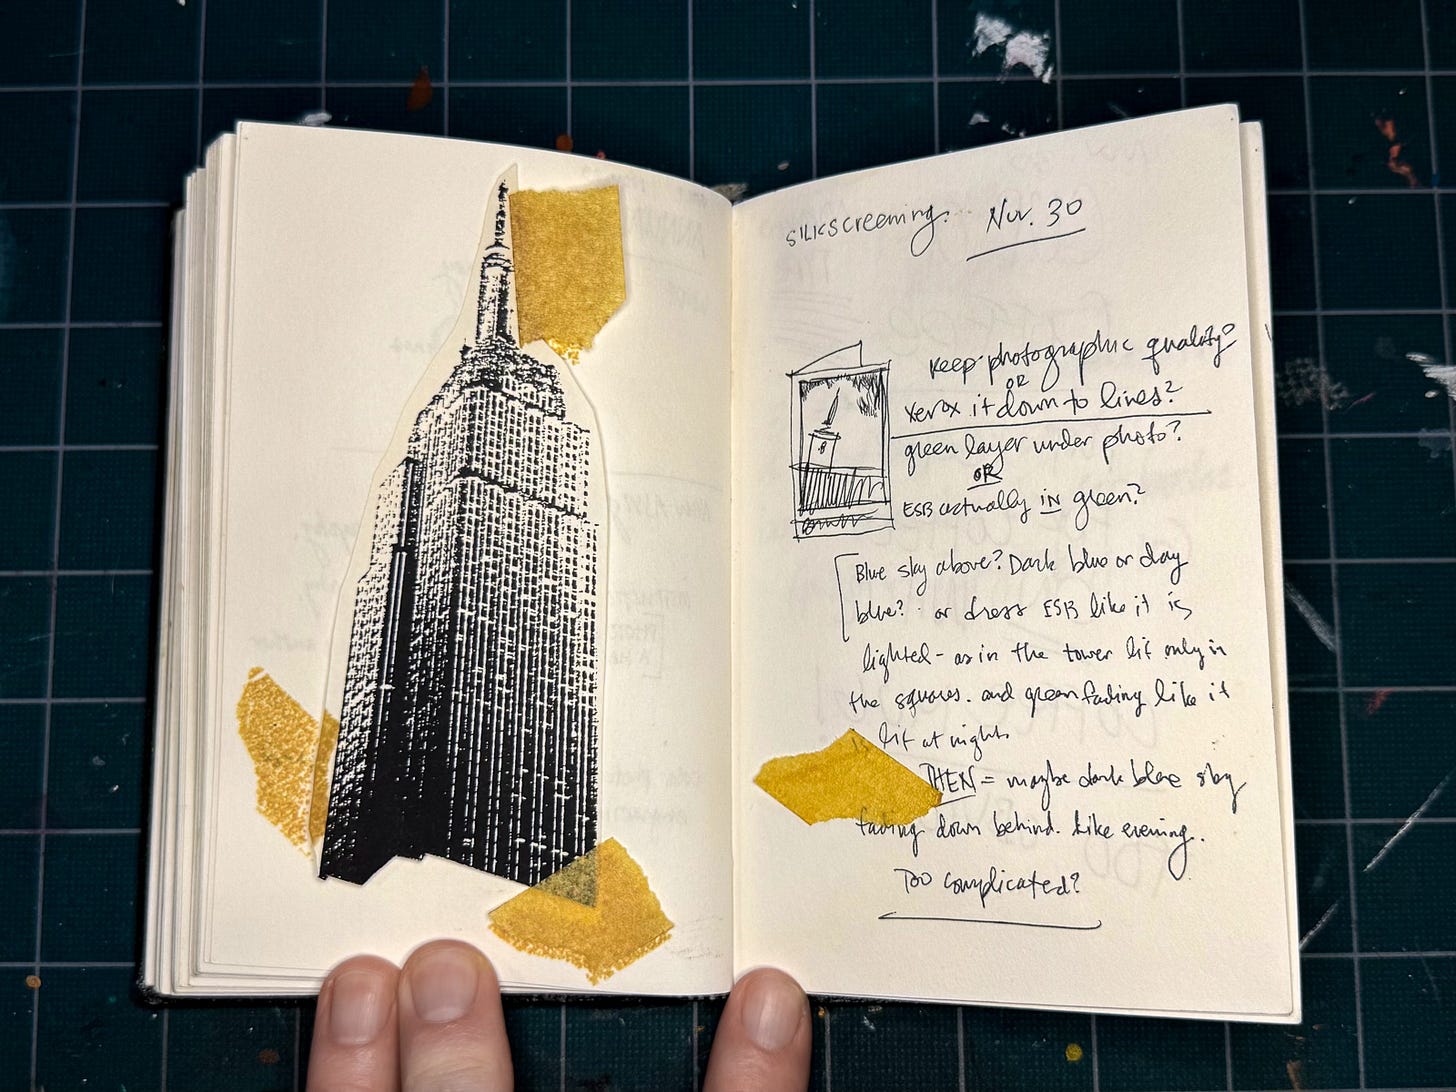 SILKSCREENING. Nov. 30
Keep photographic quality?
OR
xerox it down to lines?
green layer under photo?
OR
ESB actually IN green?
Blue sky above? Dark blue or day
blue? or dress ESB like it is
lighted - as in the tower lit only in
the squares. and green fading like it
is lit at night.
THEN = maybe dark blue sky
fading down behind. Like evening.
Too complicated?